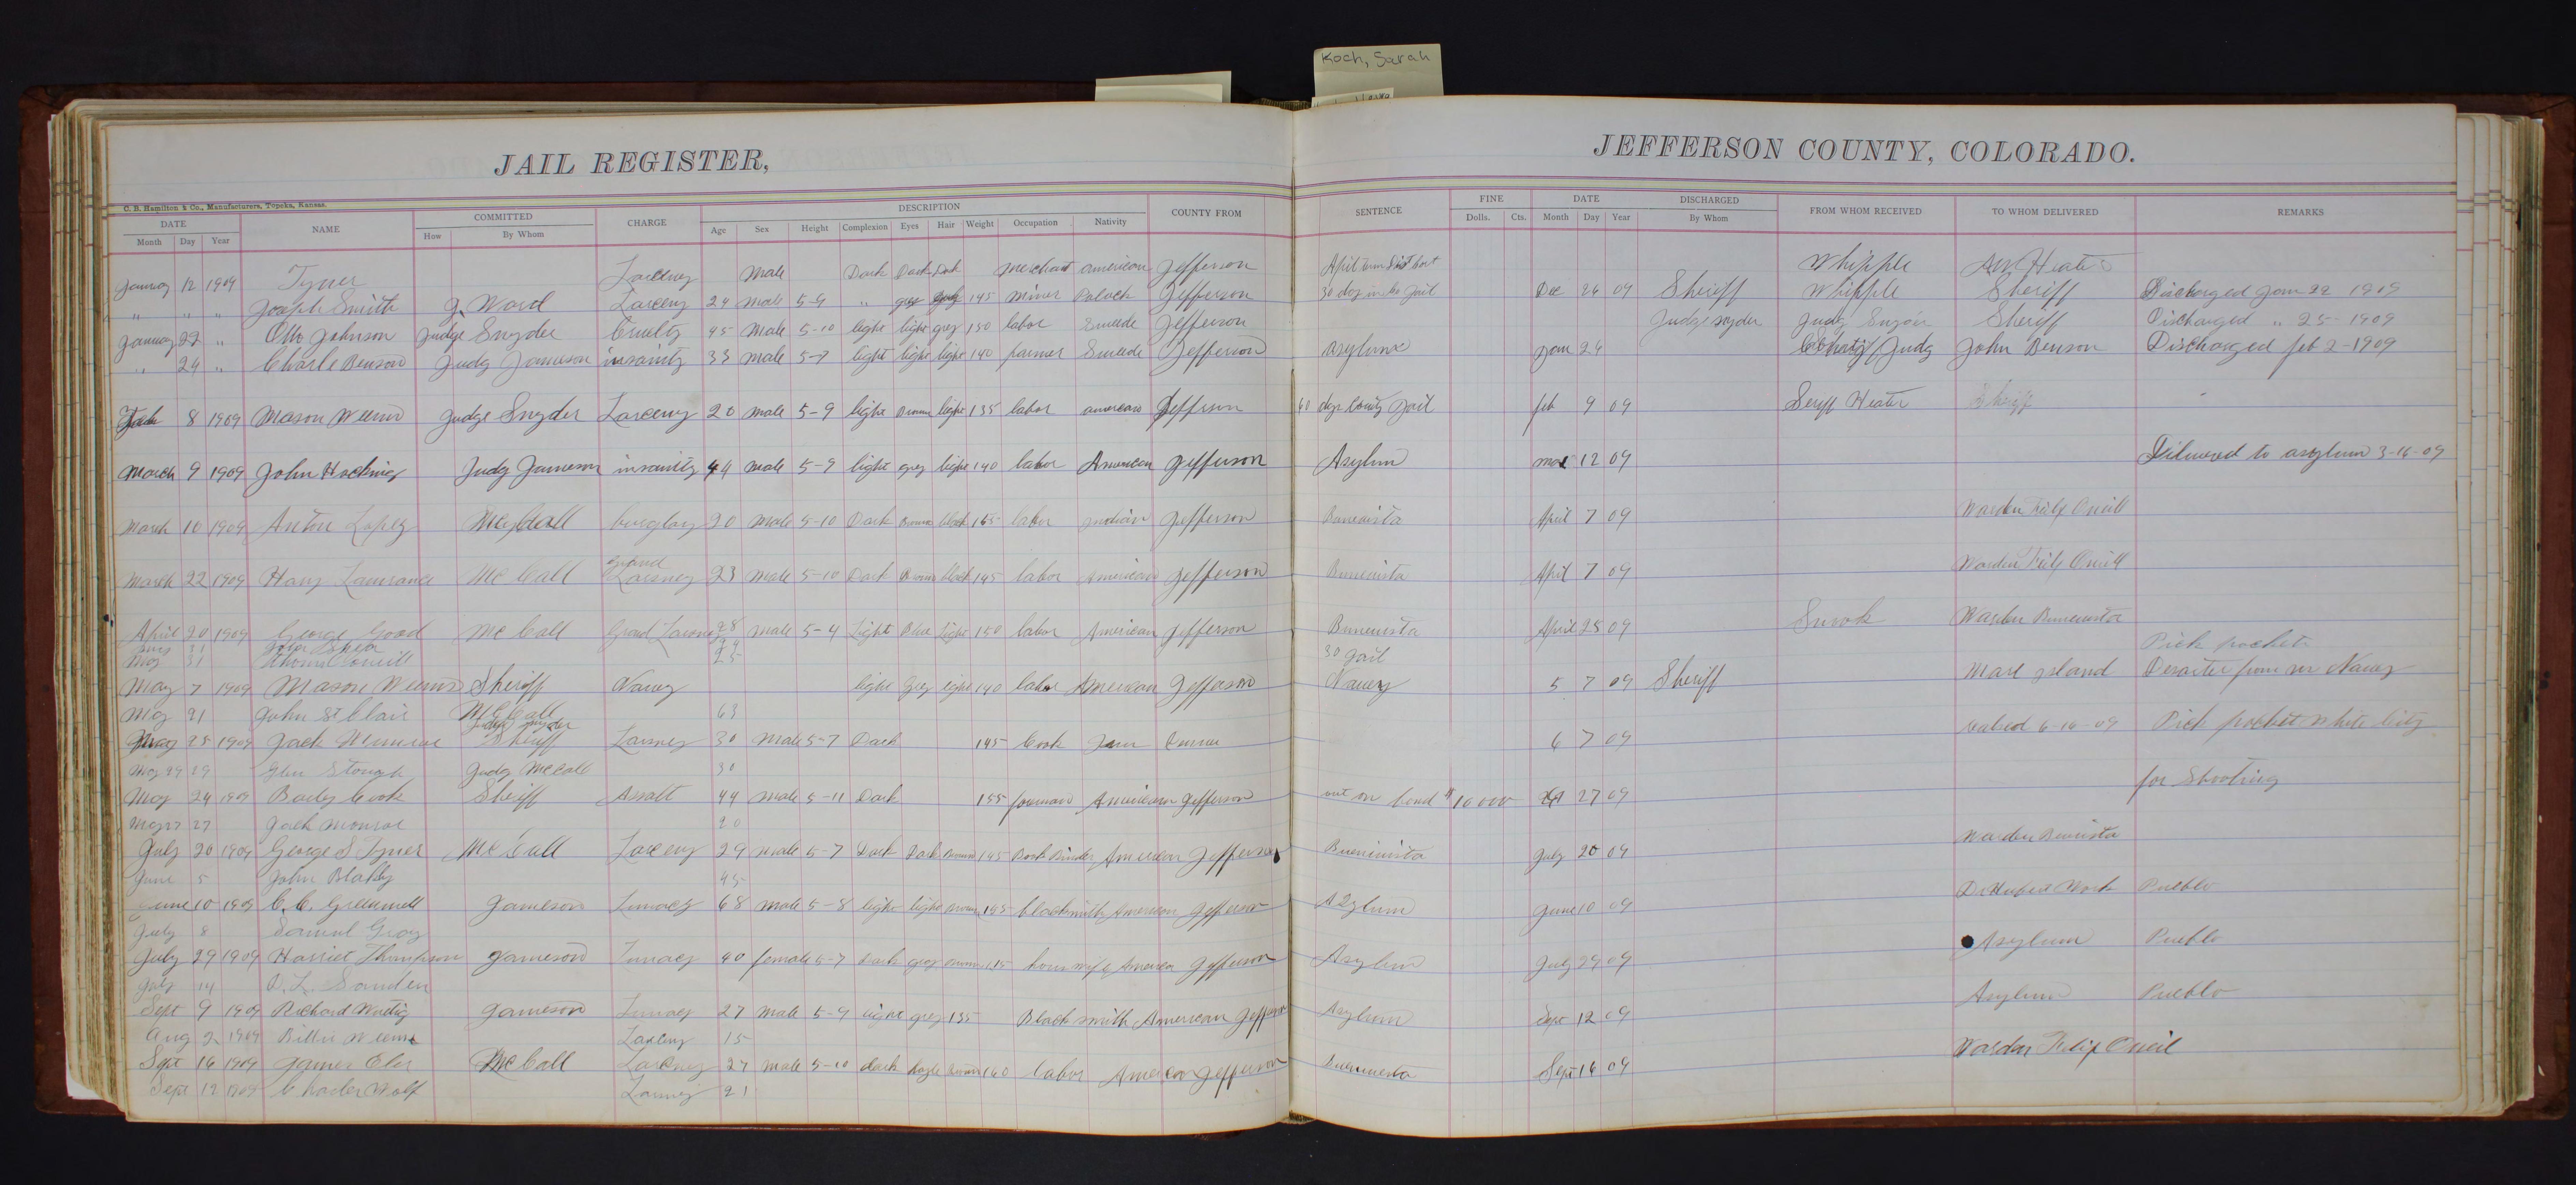 Koch, Sarah
JAIL REGISTER,
JEFFERSON COUNTY, COLORADO.
C. B. Hamilton & Co., Manufacturers, Topeka, Kansas.
DATE NAME COMMITTED CHARGE DESCRIPTION COUNTY FROM SENTENCE FINE DATE DISCHARGED FROM WHOM RECEIVED TO WHOM DELIVERED REMARKS
Month Day Year How By Whom Age Sex Height Complexion Eyes Hair Weight Occupation Nativity Dolls. Cts. Month Day Year By Whom
January 12 1909 Tyner Larceny male Dark Dark Dark merchant american Jefferson April term Whipple
" " " Joseph Smith J. Ward Larceny 24 male 5-9 " grey 145 miner Polock Jefferson 30 days in Co Jail Dec 26 09 Sheriff Whipple Sheriff Discharged Jan 22 1909
January 22 " Otto Johnson Judge Snyder Cruelty 45 male 5-10 light light grey 150 labor Sweede Jefferson Judge snyder Judg Snyder Sheriff Discharged " 25-1909
" 24 " Charle Benson Judg Jameson insanity 33 male 5-7 light light light 140 farmer Sweede Jefferson Asylum Jan 24 County Judg John Benson Discharged feb 2-1909
8 1909 Mason Weems Judge Snyder Larceny 20 male 5-9 light Brown light 135 labor american Jefferson 60 days County Jail feb 9 09 Seriff Heater Sheriff
March 9 1909 John Hocking Judg Jameson insanity 44 male 5-9 light grey light 140 labor American Jefferson Asylum mar 12 09 Delivered to asylum 3-16-09
March 10 1909 Anton Lopez McCall burglary 20 male 5-10 Dark Brown black 165 labor Indian Jefferson Bunavista April 7 09 Warden Onill
March 22 1909 Harry Lawrance McCall grand Larsney 23 male 5-10 Dark Brown black 145 labor American Jefferson Bunavista April 7 09 Warden Onill
April 20 1909 George Good McCall Grand Larsney 28 male 5-4 Light Blue Light 150 labor American Jefferson Bunavista April 25 09 Snook Warden Bunavista
31
May 31 25 30 Jail Pick pocket
May 7 1909 Mason Weems Sheriff Navey light Grey light 140 labor American Jefferson Navey 5 7 09 Sheriff Mare Island Deserter from Navey
May 21 John St Clair McCall 63
Judge Snyder
May 25 1909 Jack Sheriff Larsney 30 male 5-7 Dark 145 Cook 6 7 09 6-16-09 Pick pocket White City
May 29 29 Glen Stough Judg McCall 30
May 24 1909 Baily Cook Sheriff Assalt 44 male 5-11 Dark 155 American Jefferson out on bond $10000 27 09 for Shooting
May 27 27 Jack Monroe 20
July 20 1909 George S Tyner McCall Larceny 29 male 5-7 Dark Dark Brown 145 Book Binder American Jefferson Buenavista July 20 09 Warden
June 5 John Blakly 45
June 10 1909 C. C. Jameson Lunacy 68 male 5-8 light light Brown 155 blacksmith American Jefferson Asylum June 10 09 Dr Hubert Work Pueblo
July 8 Samuel Gray
July 29 1909 Harriet Thompson Jameson Lunacy 40 female 5-7 Dark grey Brown 115 house wife America Jefferson Asylum July 29 09 Asylum Pueblo
July 14 D. L. Sanden
Sept 9 1909 Richard Jameson Lunacy 27 male 5-9 light grey 135 Black smith American Jefferson Asylum Sept 12 09 Asylum Pueblo
Aug 2 1909 Billie Weems Larceny 15
Sept 16 1909 James McCall Larceny 27 male 5-10 dark hazle Brown 160 labor American Jefferson Sept 16 09 Warden Oneil
Sept 12 1909 Charles Wolf Larsney 21